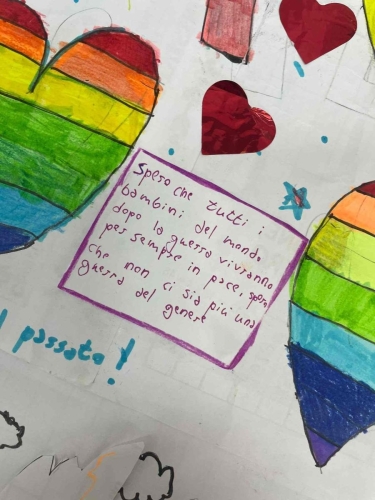 Spero che tutti i
bambini del mondo
dopo la guerra vivranno
per sempre in pace, spero
che non ci sia più una
guerra del genere
passato!